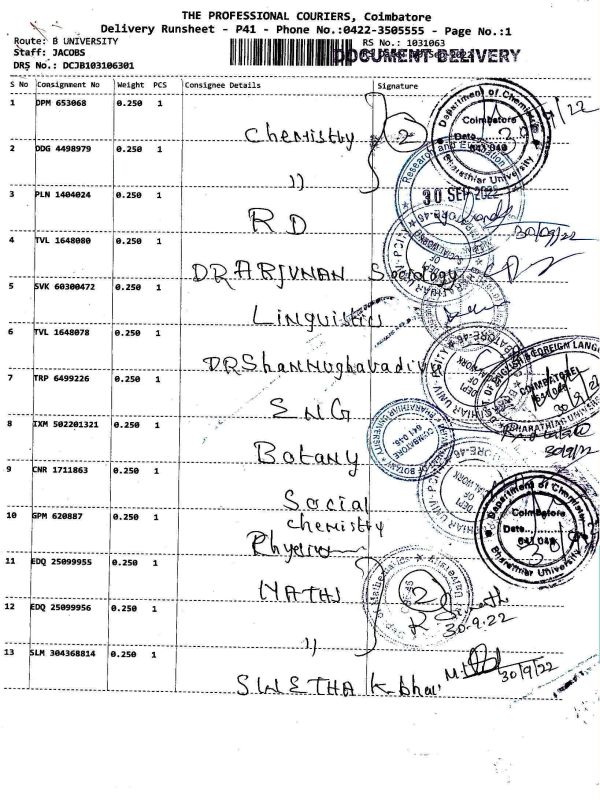 THE PROFESSIONAL COURIERS, Coimbatore
Delivery Runsheet - P41 - Phone No.:0422-3505555 - Page No.:1
Route: B UNIVERSITY
RS No.: 1031063
Staff: JACOBS
DOCUMENT DELIVERY
DRS No.: DCJB103106301
S No Consignment No Weight PCS Consignee Details Signature
1 DPM 653068 0.250 1
Chemistry 2
2 DDG 4498979 0.250 1
"
3 PLN 1404024 0.250 1
30 SEP 2022
RD
30/09/22
4 TVL 1648080 0.250 1
DR ARJUNAN Sociology
5 SVK 60300472 0.250 1
Linguistics
6 TVL 1648078 0.250 1
DR Shanmughavadivu
7 TRP 6499226 0.250 1
ENG
8 IXM 502201321 0.250 1
Botany
30/9/22
9 CNR 1711863 0.250 1
Social
10 GPM 620887 0.250 1
Chemistry
11 EDQ 25099955 0.250 1
MATHS 2
30.9.22
12 EDQ 25099956 0.250 1
"
13 SLM 304368814 0.250 1
30/9/22
SWETHA K bhav
Department of Chemistry
Coimbatore
Date
641 046
Bharathiar University
Department of Chemistry
Coimbatore
Date
641 046
Bharathiar University